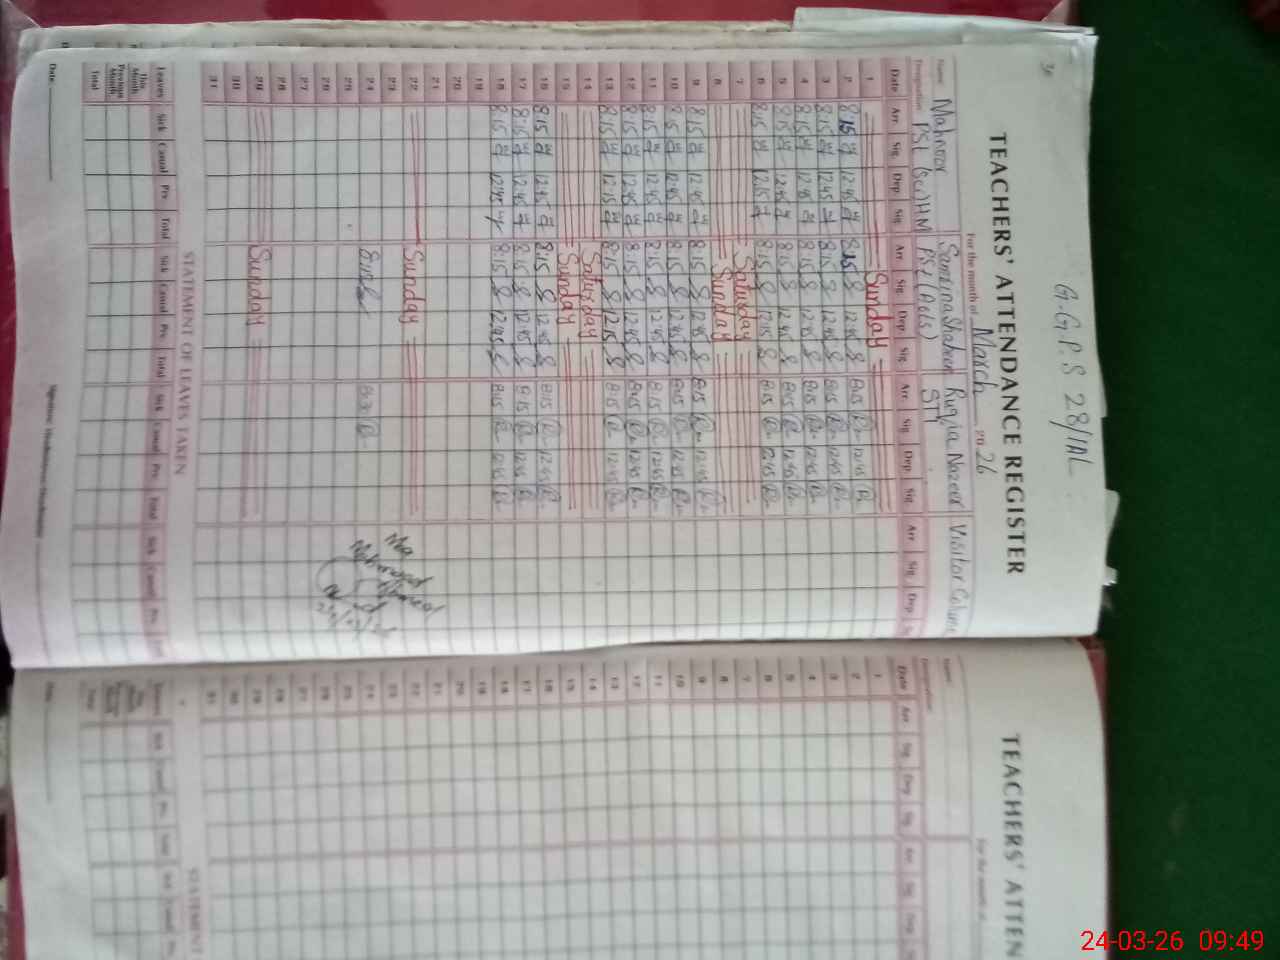 30
G.G.P.S 28/1AL
TEACHERS' ATTENDANCE REGISTER
For the month of March 2026
Name Mahnoor Samina Shaheen Ruqia Nazeer Visitor Column
Designation PST (Sci) HM PST (Arts) ST
Date Arr. Sig. Dep. Sig. Arr. Sig. Dep. Sig. Arr. Sig. Dep. Sig. Arr. Sig. Dep.
1 Sunday
2 8:15 12:45 8:15 12:45 8:15 12:45
3 8:15 12:45 8:15 12:45 8:15 12:45
4 8:15 12:45 8:15 12:45 8:15 12:45
5 8:15 12:45 8:15 12:45 8:15 12:45
6 8:15 12:15 8:15 12:15 8:15 12:45
7 Saturday
8 Sunday
9 8:15 12:45 8:15 12:45 8:15 12:45
10 8:15 12:45 8:15 12:45 8:15 12:45
11 8:15 12:45 8:15 12:45 8:15 12:45
12 8:15 12:45 8:15 12:45 8:15 12:45
13 8:15 12:15 8:15 12:15 8:15 12:45
14 Saturday
15 Sunday
16 8:15 12:45 8:15 12:45 8:15 12:45
17 8:15 12:45 8:15 12:45 8:15 12:45
18 8:15 12:45 8:15 12:45 8:15 12:45
19
20
21
22 Sunday
23
24 8:15 8:30
25
26
27
28
29 Sunday
30
31
STATEMENT OF LEAVES TAKEN
Leaves Sick Casual Prv. Total Sick Casual Prv. Total Sick Casual Prv. Total Sick Casual Prv.
This Month
Previous Month
Total
Date
Signature Headmistress/Headmaster
TEACHERS' ATTEN
For the month of
Name
Designation
Date Arr. Sig. Dep. Sig. Arr. Sig. Dep. Sig.
1
2
3
4
5
6
7
8
9
10
11
12
13
14
15
16
17
18
19
20
21
22
23
24
25
26
27
28
29
30
31
STATEMENT
Leaves Sick Casual Prv. Total Sick Casual Prv.
This Month
Previous Month
Total
Date
24-03-26 09:49